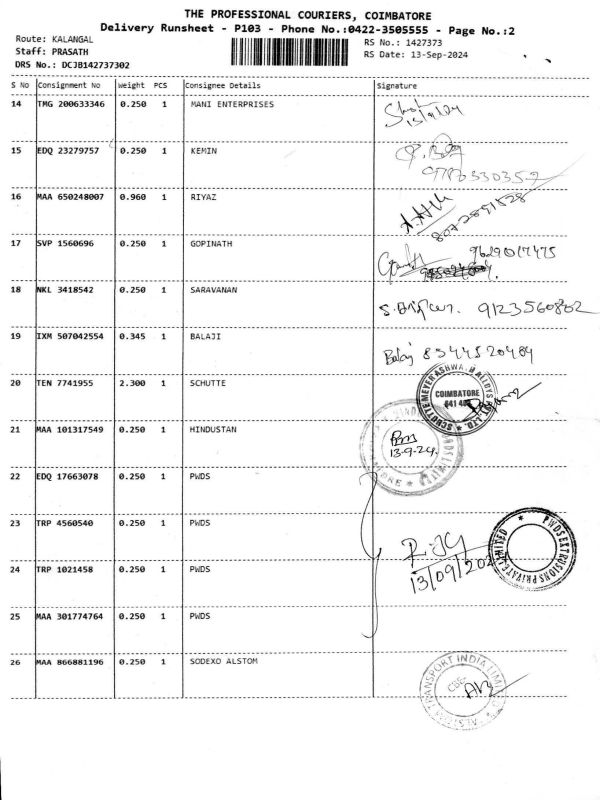 THE PROFESSIONAL COURIERS, COIMBATORE
Delivery Runsheet - P103 - Phone No.:0422-3505555 - Page No.:2
Route: KALANGAL
Staff: PRASATH
DRS No.: DCJB142737302
RS No.: 1427373
RS Date: 13-Sep-2024
S No Consignment No Weight PCS Consignee Details Signature
14 TMG 200633346 0.250 1 MANI ENTERPRISES
13/9/24
15 EDQ 23279757 0.250 1 KEMIN
16 MAA 650248007 0.960 1 RIYAZ
8072891528
17 SVP 1560696 0.250 1 GOPINATH
9629017475
18 NKL 3418542 0.250 1 SARAVANAN
9123560802
19 IXM 507042554 0.345 1 BALAJI
Balaj 8344520404
20 TEN 7741955 2.300 1 SCHUTTE
COIMBATORE
21 MAA 101317549 0.250 1 HINDUSTAN
13-9-24
22 EDQ 17663078 0.250 1 PWDS
23 TRP 4560540 0.250 1 PWDS
PWDS EXTRUSIONS PRIVATE LIMITED
24 TRP 1021458 0.250 1 PWDS
13/09/202
25 MAA 301774764 0.250 1 PWDS
26 MAA 866881196 0.250 1 SODEXO ALSTOM
TRANSPORT INDIA LIMITED
CBE